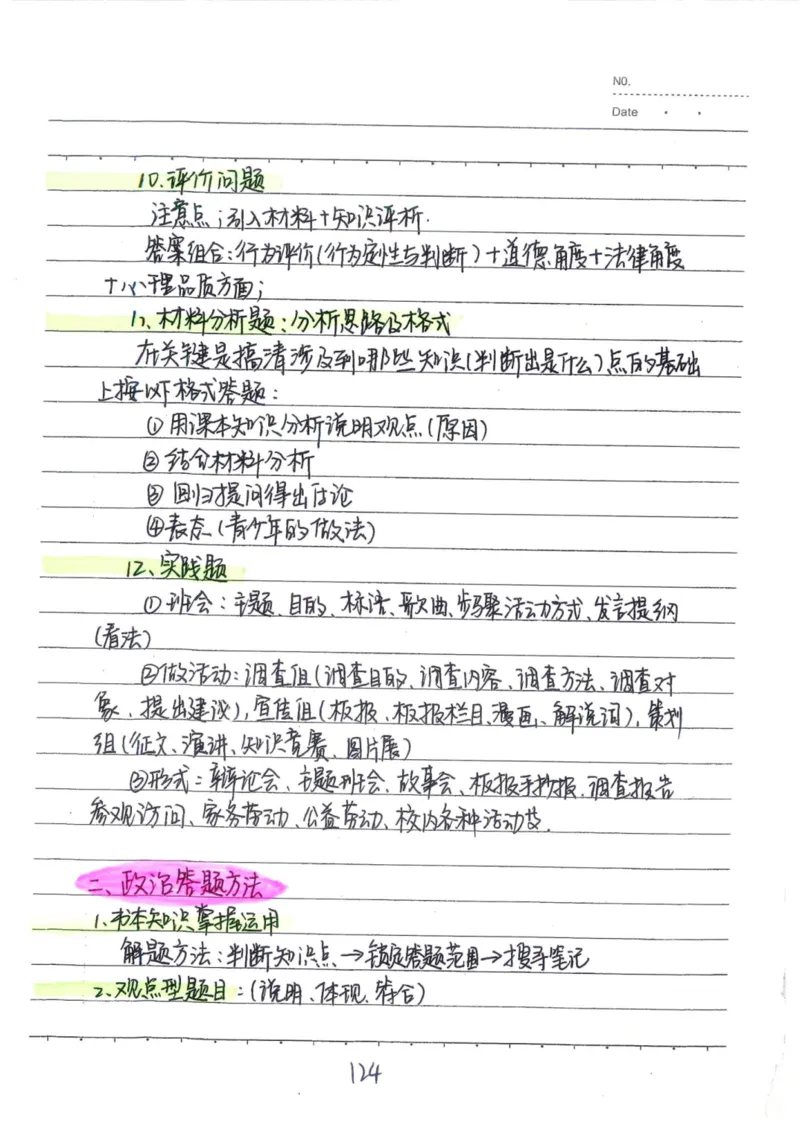 NO.
Date
10.评价问题
注意点;引入材料+知识评析.
答案组合:行为评价(行为定性与判断)+道德角度+法律角度
+心理品质方面;
11、材料分析题:分析思路及格式
在关键是搞清涉及到哪些知识(判断出是什么)点的基础
上按以下格式答题:
①用课本知识分析说明观点(原因)
②结合材料分析
③回归提问得出结论
④表态(青少年的做法)
12、实践题
①班会:主题、目的、标语、歌曲、步骤活动方式、发言提纲
(看法)
②做活动:调查组(调查目的、调查内容、调查方法、调查对
象、提出建议),宣传组(板报、板报栏目、漫画、解说词),策划
组(征文、演讲、知识竞赛、图片展)
③形式:辩论会、主题班会、故事会、板报手抄报、调查报告
参观访问、家务劳动、公益劳动、校内各种活动等.
二、政治答题方法
1、书本知识掌握运用
解题方法:判断知识点→锁定答题范围→搜寻笔记
2、观点型题目:(说明、体现、符合)
124